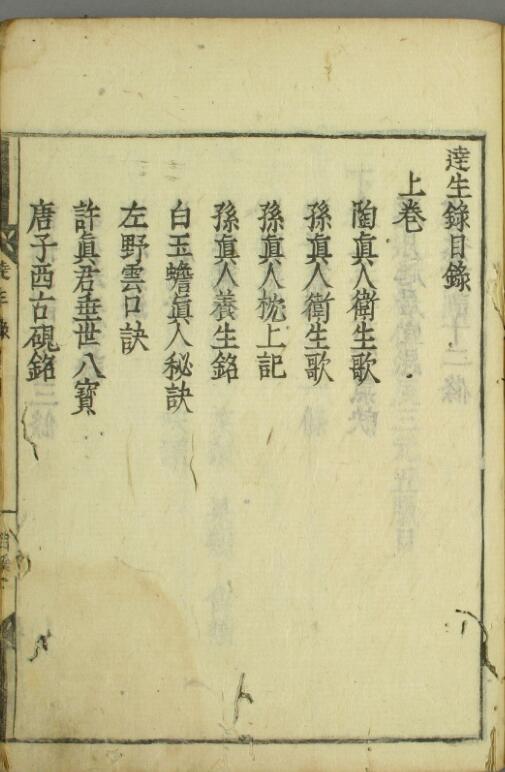 達生錄目錄
上卷
陶眞人衛生歌
孫眞人衛生歌
孫眞人枕上記
孫眞人養生銘
白玉蟾眞人秘訣
左野雲口訣
許眞君垂世八寶
唐子西古硯銘
達生錄